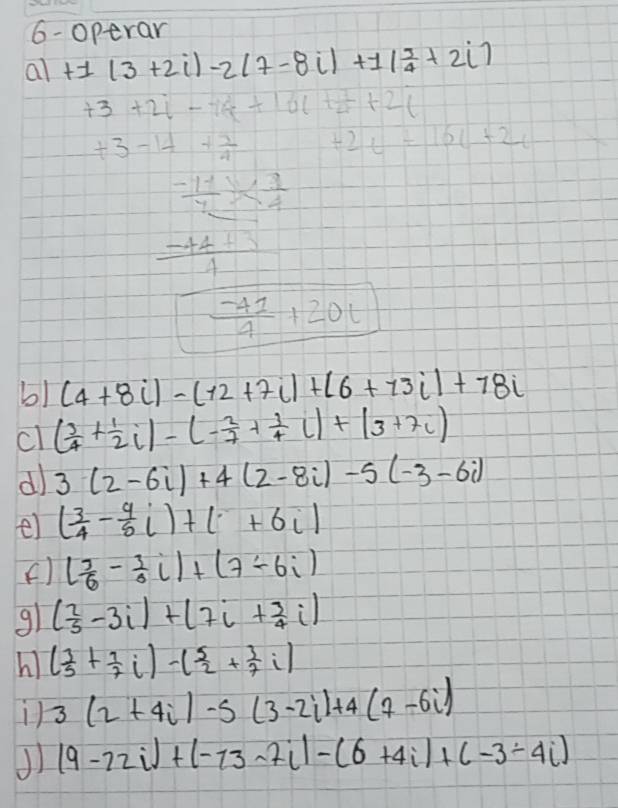 6-Operar
a) +1 (3+2i)-2(7-8i) +1(3/4+2i)
+3 +2i -14 +16i +3/4 +2i
+3-14 +3/4 +2i +16i +2i
-11/1 3/4
-44+3/4
-41/4 +20i
b) (4+8i)-(12+7i)+(6+13i)+18i
c) (3/4+1/2i)-(-2/7+3/4i)+(3+7i)
d) 3(2-6i)+4(2-8i)-5(-3-6i)
e) (3/4-9/5i)+( +6i)
f) ( -  i)+(7-6i)
g) ( -3i)+(7i+3/4i)
h) ( +  i)-(5/2+  i)
i) 3(2+4i)-5(3-2i)+4(7-6i)
j) (9-22i)+(-13-7i)-(6+4i)+(-3-4i)